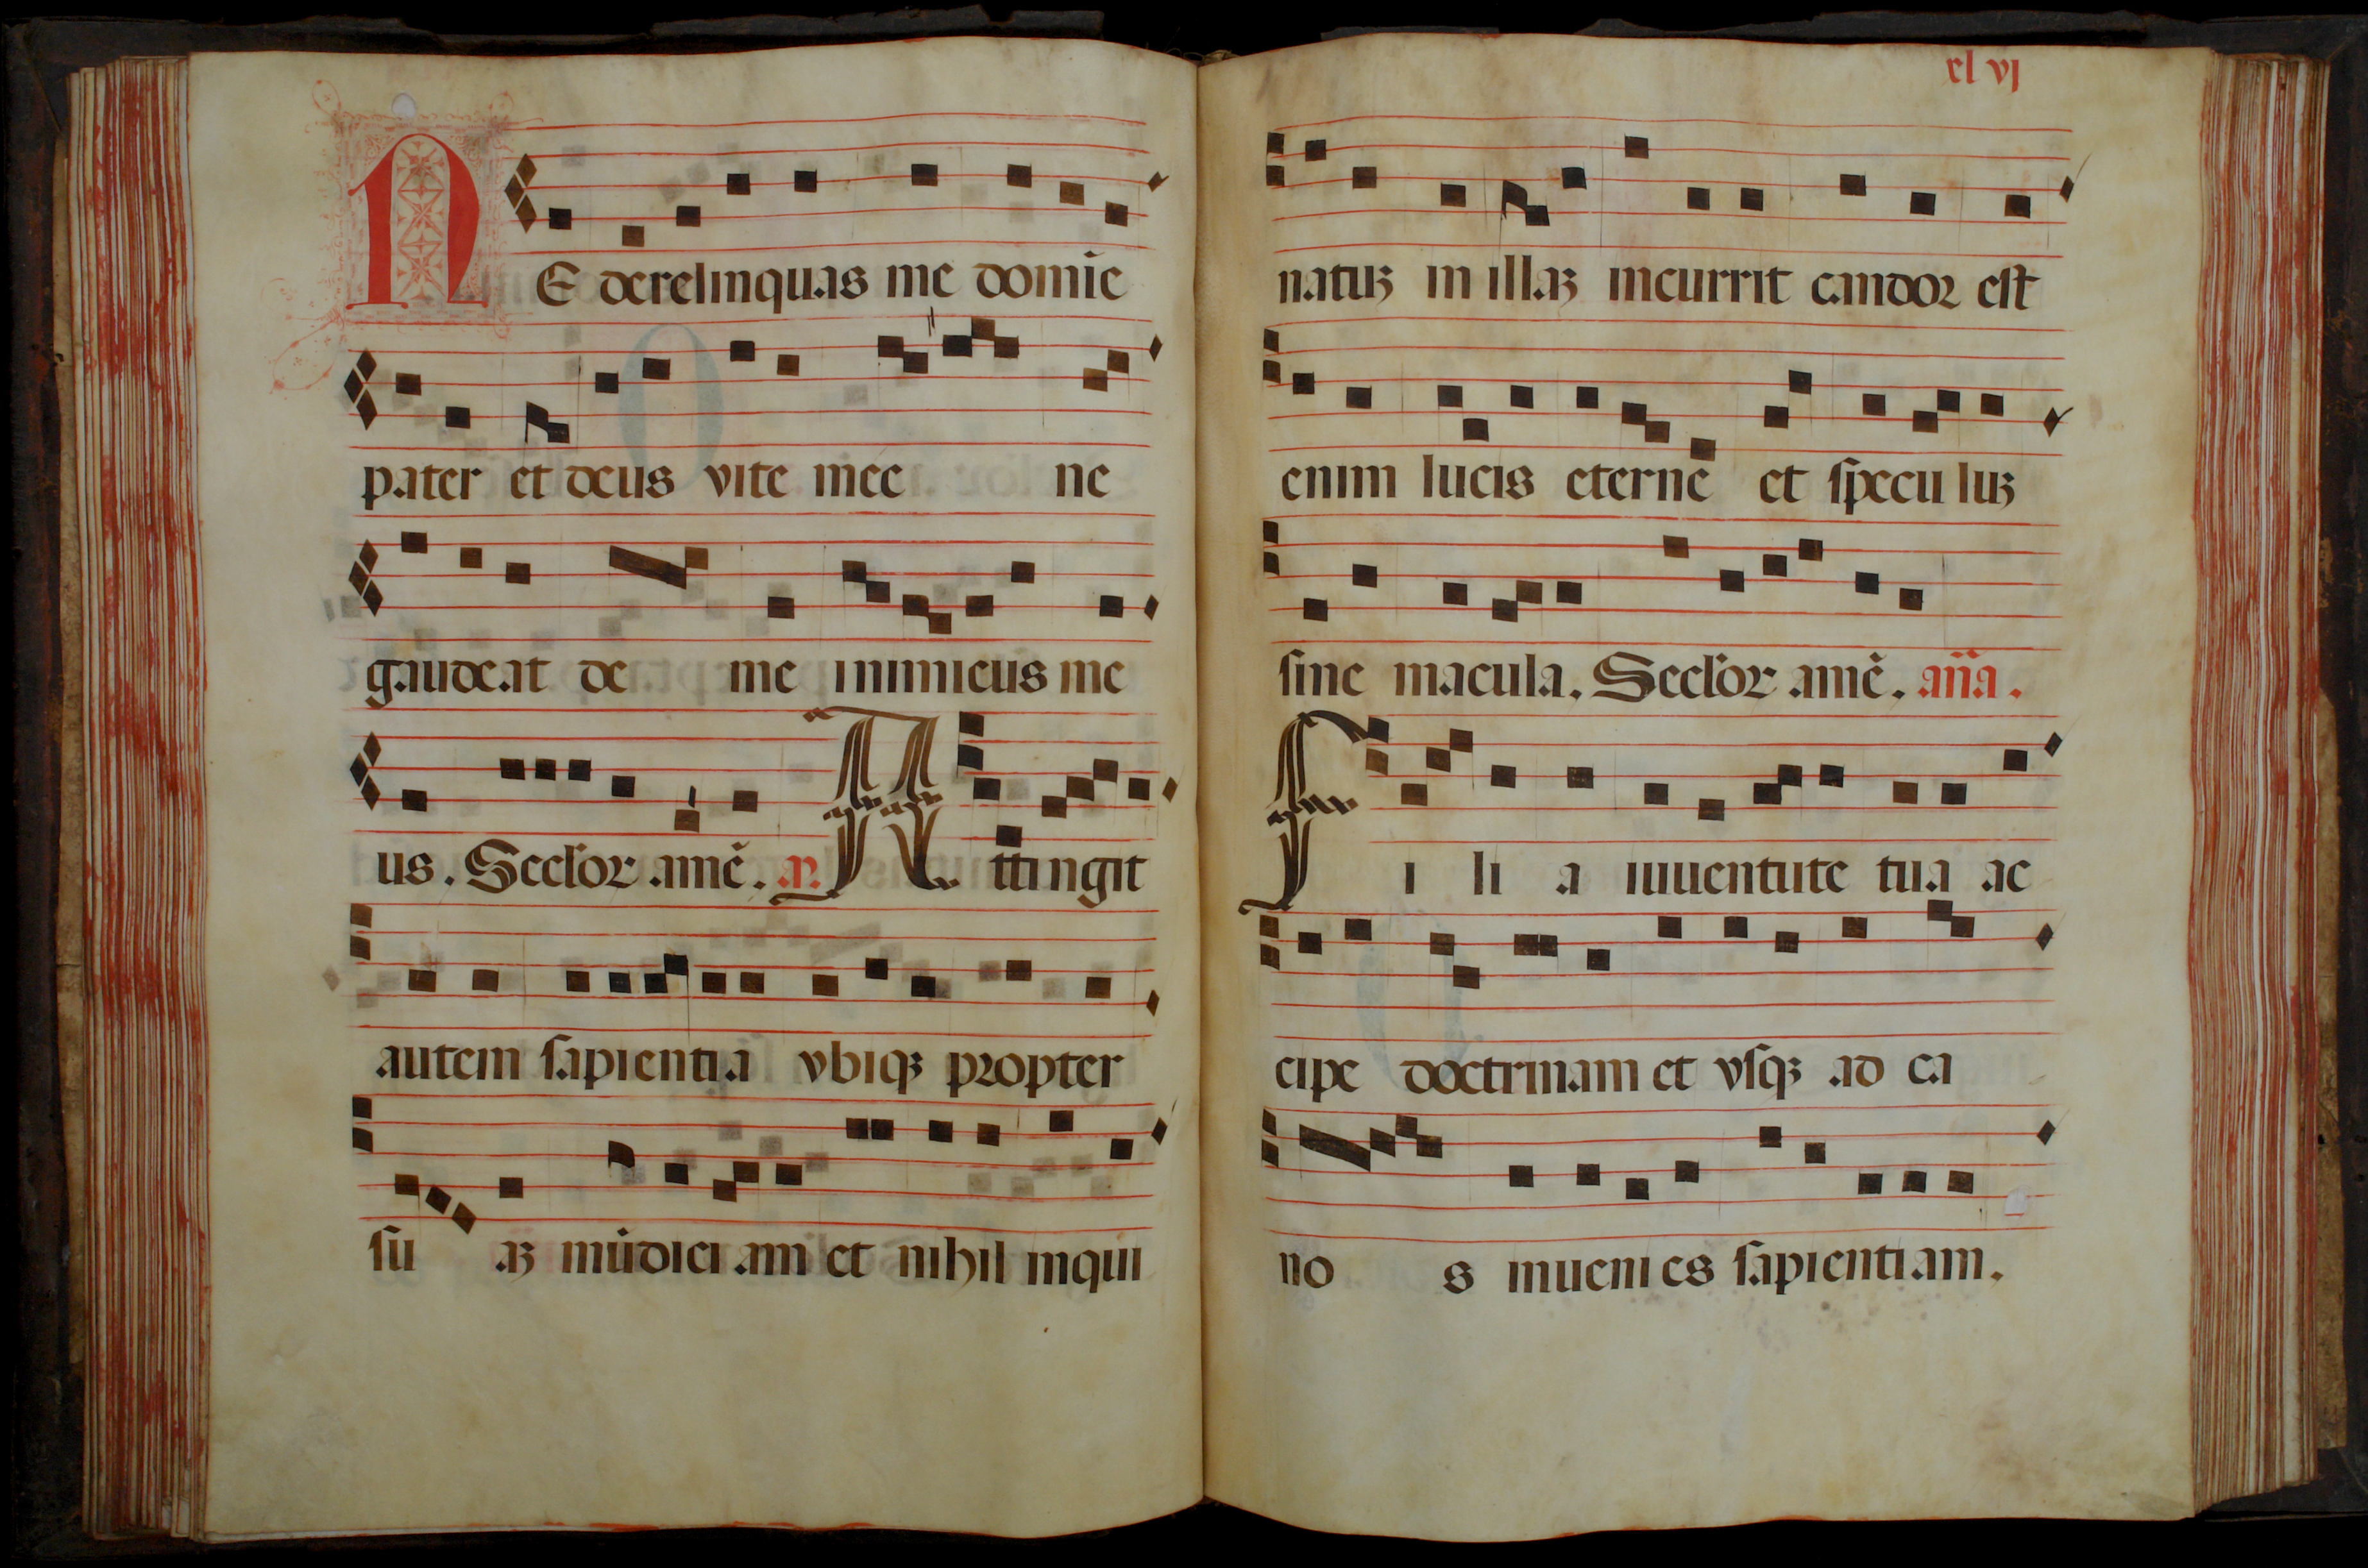 NE derelinquas me domĩe
pater et deus vite mee ne
gaudeat de me inimicus me
us. Seclor̃ amẽ. a. Attingit
autem sapientia vbiqꝫ propter
su aꝫ mũdici am et nihil inqui
xl vj
natuꝫ in illaꝫ incurrit candor est
enim lucis eterne et specu luꝫ
sine macula. Seclor̃ amẽ. an̄a.
Fi li a iuuentute tua ac
cipe doctrinam et vsqꝫ ad ca
no s inueni es sapientiam.